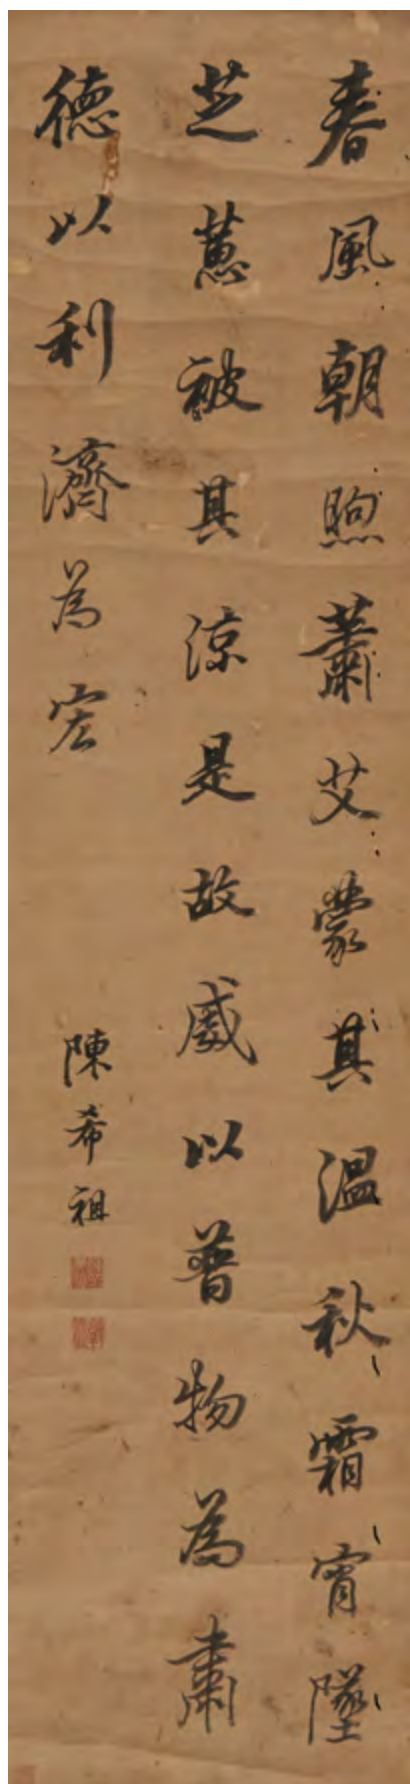 春風朝煦蕭艾蒙其温秋霜宵墜
芝蕙被其涼是故威以普物為肅
德以利濟為宏
陳希祖